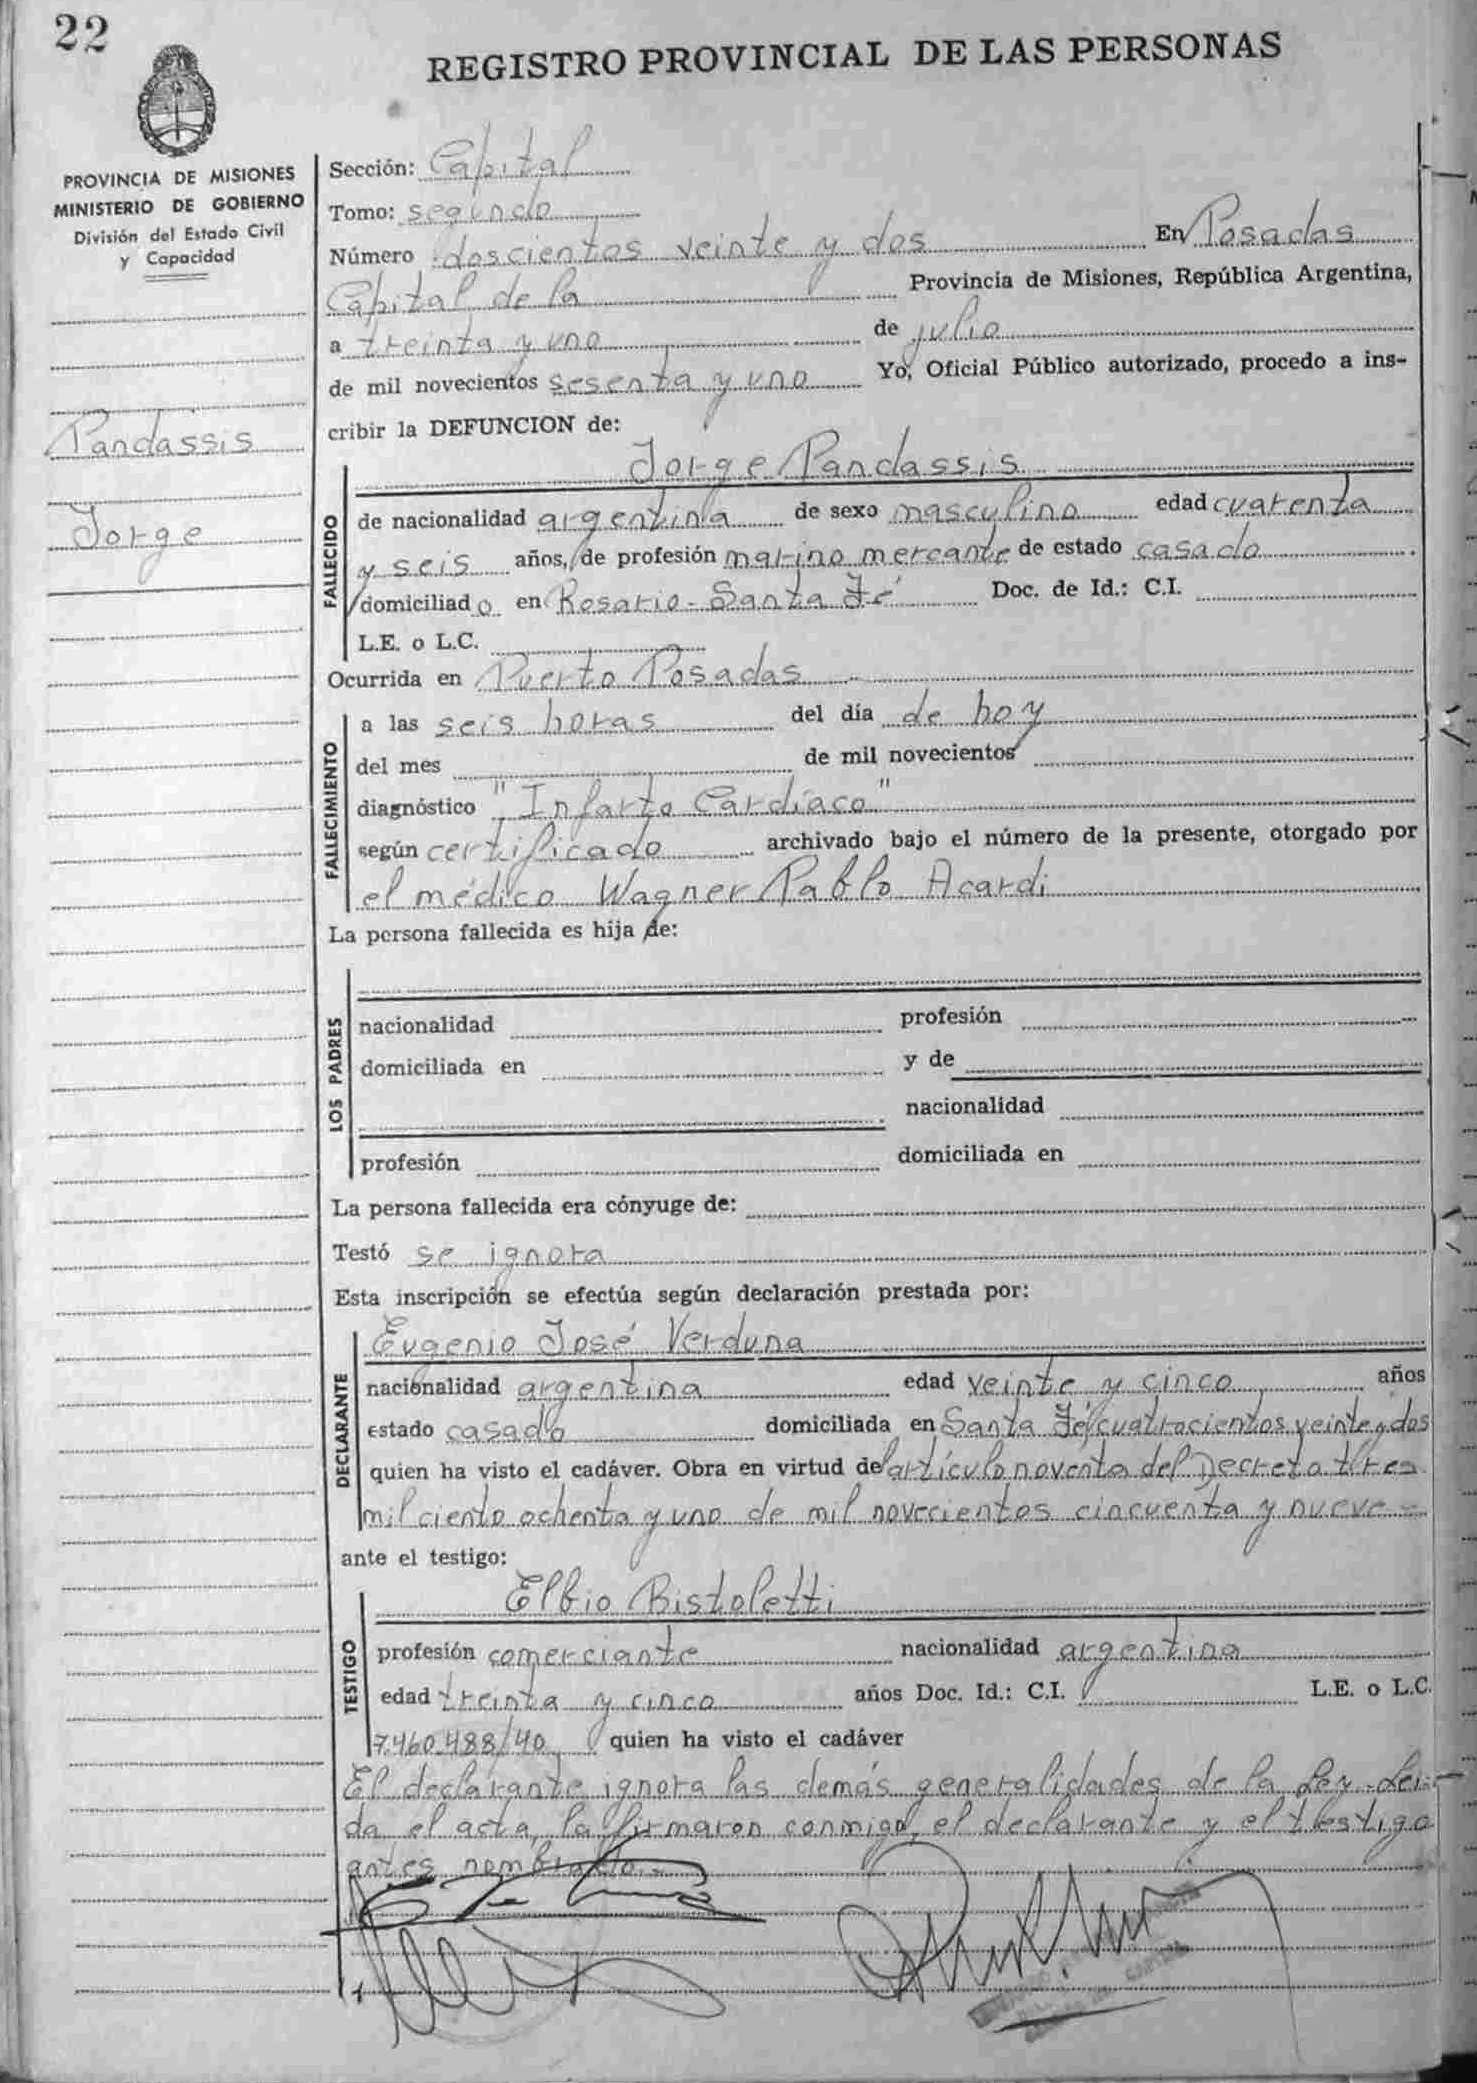 22
REGISTRO PROVINCIAL DE LAS PERSONAS
PROVINCIA DE MISIONES
MINISTERIO DE GOBIERNO
División del Estado Civil
y Capacidad
Pandassis
Jorge
Sección: Capital
Tomo: segundo
Número doscientos veinte y dos En Posadas
Capital de la Provincia de Misiones, República Argentina,
a treinta y uno de julio
de mil novecientos sesenta y uno Yo, Oficial Público autorizado, procedo a ins-
cribir la DEFUNCION de:
Jorge Pandassis
FALLECIDO
de nacionalidad argentina de sexo masculino edad cuarenta
y seis años, de profesión marino mercante de estado casado
domiciliado en Rosario - Santa Fé Doc. de Id.: C.I.
L.E. o L.C.
Ocurrida en Puerto Posadas
FALLECIMIENTO
a las seis horas del día de hoy
del mes de mil novecientos
diagnóstico "Infarto Cardíaco"
según certificado archivado bajo el número de la presente, otorgado por
el médico Wagner Pablo Acardi
La persona fallecida es hija de:
LOS PADRES
nacionalidad profesión
domiciliada en y de
nacionalidad
profesión domiciliada en
La persona fallecida era cónyuge de:
Testó se ignora
Esta inscripción se efectúa según declaración prestada por:
DECLARANTE
Eugenio José Verduna
nacionalidad argentina edad veinte y cinco años
estado casado domiciliada en Santa Fé cuatrocientos veinte y dos
quien ha visto el cadáver. Obra en virtud del artículo noventa del Decreto tres
mil ciento ochenta y uno de mil novecientos cincuenta y nueve-
ante el testigo:
TESTIGO
Elbio Bistoletti
profesión comerciante nacionalidad argentina
edad treinta y cinco años Doc. Id.: C.I. L.E. o L.C.
7.460.488/40 quien ha visto el cadáver
El declarante ignora las demás generalidades de la Ley. Leí-
da el acta, la firmaron conmigo, el declarante y el testigo
antes nombrado.-